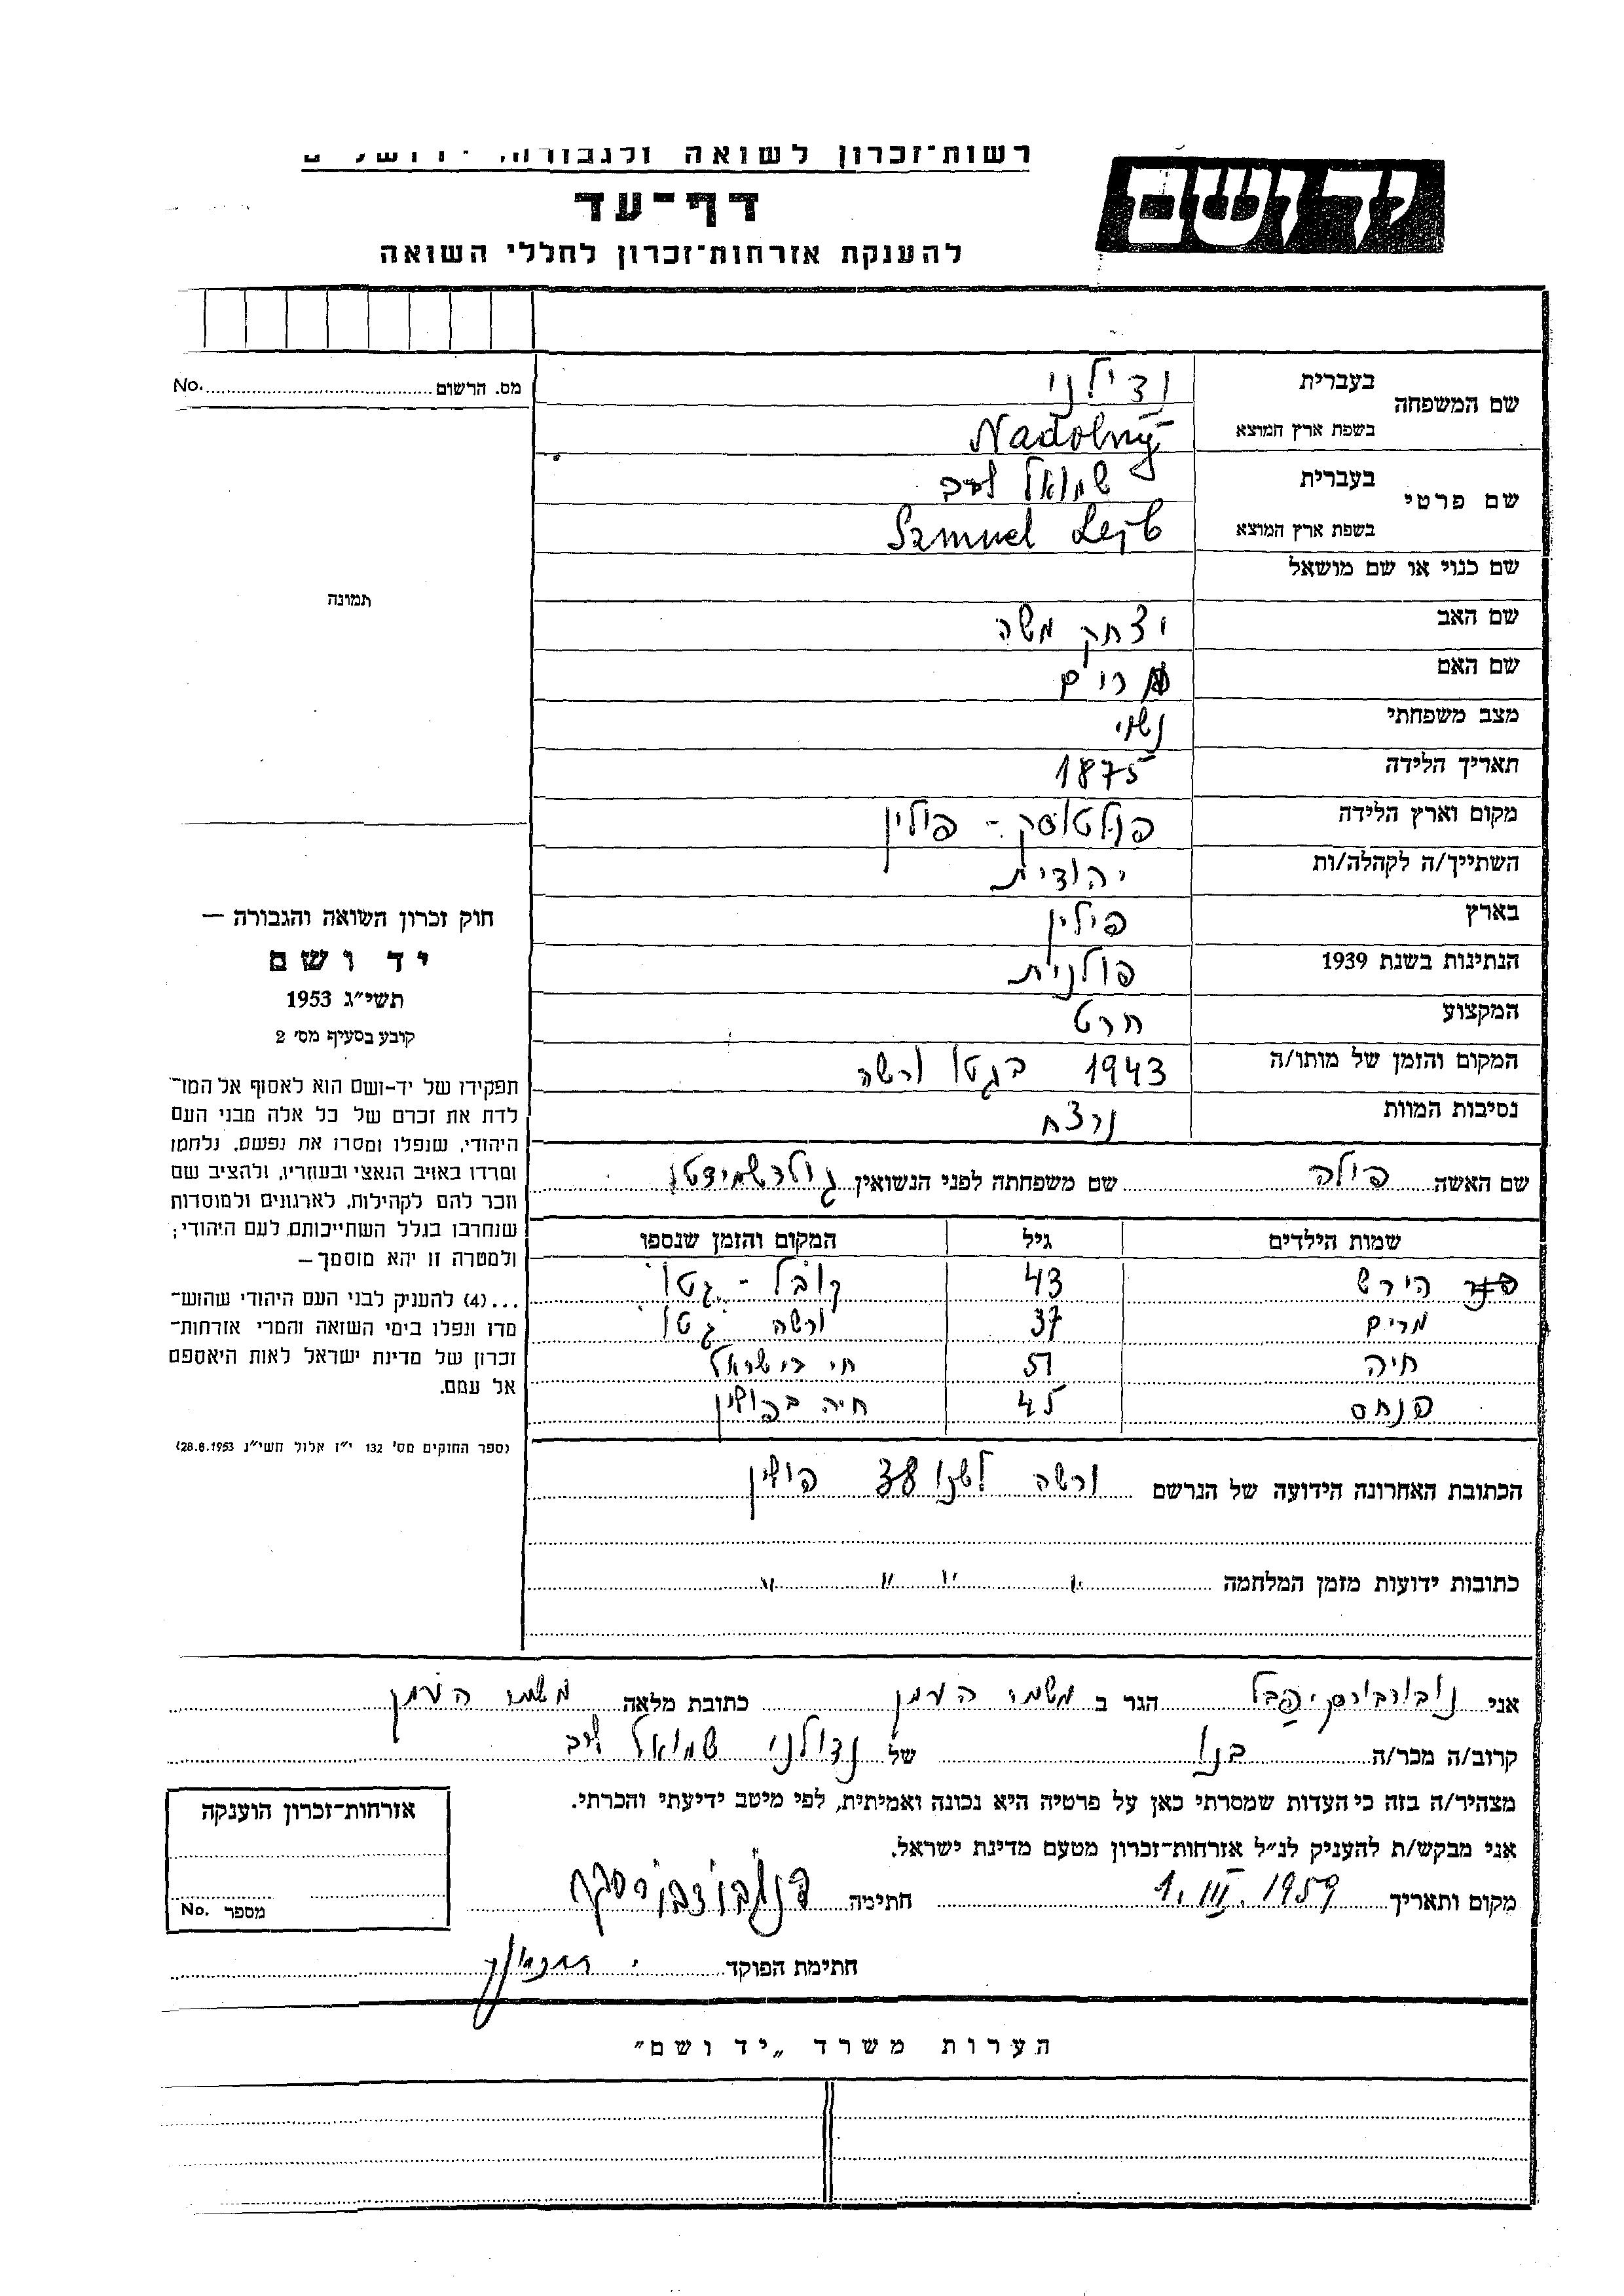 רשות־זכרון לשואה ולגבורה, ירושלים
ידושם
דף־עד
להענקת אזרחות־זכרון לחללי השואה
מס. הרשום No.
שם המשפחה בעברית
בשפת ארץ המוצא Nadolny
שם פרטי בעברית שמואל לייב
בשפת ארץ המוצא Szmuel Lejb
שם כנוי או שם מושאל
שם האב יצחק משה
שם האם מרים
מצב משפחתי נשוי
תאריך הלידה 1875
מקום וארץ הלידה פולטוסק - פולין
השתייך/ה לקהלה/ות יהודית
בארץ פולין
הנתינות בשנת 1939 פולנית
המקצוע חרט
המקום והזמן של מותו/ה 1943 בגטו ורשה
נסיבות המוות נרצח
שם האשה פולה שם משפחתה לפני הנשואין
שמות הילדים גיל המקום והזמן שנספו
הירש 43 קובל - גטו
מרים 37 ורשה גטו
חיה 51 חי בישראל
פנחס 45 חיה בפולין
הכתובת האחרונה הידועה של הנרשם ורשה פולין
כתובות ידועות מזמן המלחמה " " " "
אני הגר ב משמר העמק כתובת מלאה משמר העמק
קרוב/ה מכר/ה בנו של נדולני שמואל לייב
מצהיר/ה בזה כי העדות שמסרתי כאן על פרטיה היא נכונה ואמיתית, לפי מיטב ידיעתי והכרתי.
אני מבקש/ת להעניק לנ״ל אזרחות־זכרון מטעם מדינת ישראל.
מקום ותאריך 1. III. 1959 חתימה
חתימת הפוקד
הערות משרד „יד ושם״
תמונה
חוק זכרון השואה והגבורה —
יד ושם
תשי״ג 1953
קובע בסעיף מס׳ 2
תפקידו של יד־ושם הוא לאסוף אל המו־
לדת את זכרם של כל אלה מבני העם
היהודי, שנפלו ומסרו את נפשם, נלחמו
ומרדו באויב הנאצי ובעוזריו, ולהציב שם
וזכר להם לקהילות, לארגונים ולמוסדות
שנחרבו בגלל השתייכותם לעם היהודי;
ולמטרה זו יהא מוסמך —
...(4) להעניק לבני העם היהודי שהוש־
מדו ונפלו בימי השואה והמרי אזרחות־
זכרון של מדינת ישראל לאות היאספם
אל עמם.
(ספר החוקים מס׳ 132 י״ז אלול תשי״ג 28.8.1953)
אזרחות־זכרון הוענקה
מספר No.